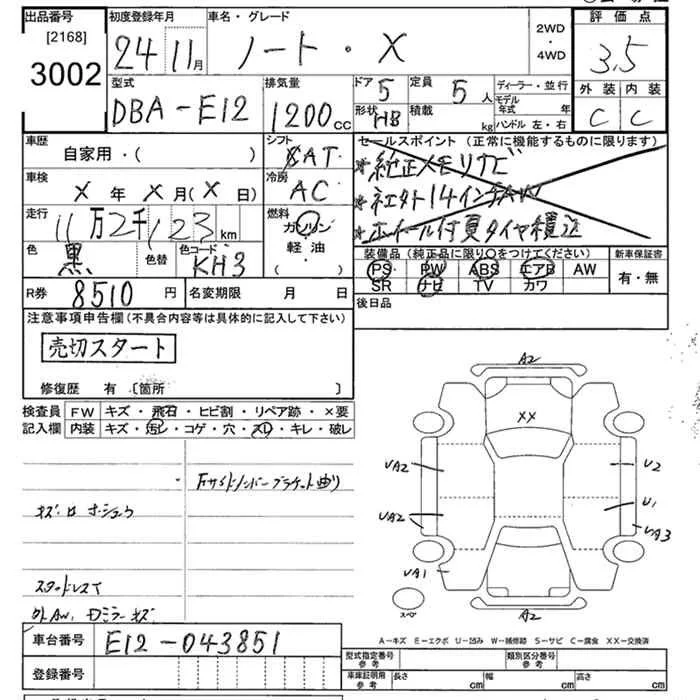 出品番号
[2168]
3002
初度登録年月
24 11月
車名・グレード
ノート・X
2WD
・
4WD
評価点
3.5
型式
DBA-E12
排気量
1200cc
ドア
5
定員
5人
形状
HB
積載
kg
ディーラー・並行
モデル年式 年
ハンドル 左・右
外装 内装
C C
車歴
自家用・( )
シフト
FAT
セールスポイント (正常に機能するものに限ります)
*純正メモリナビ
*社外14インチAW
*ホイール付夏タイヤ積込
車検
X 年 X 月(X 日)
冷房
AC
走行
11万2千123km
燃料
ガソリン
軽油
色
黒
色替
色コード
KH3
装備品 (純正品に限り〇をつけてください)
PS PW ABS エアB AW
SR ナビ TV カワ
新車保証書
有・無
R券 8510 円
名変期限 月 日
後日品
注意事項申告欄 (不具合内容等は具体的に記入して下さい)
売切スタート
修復歴 有 〔箇所 〕
検査員
記入欄
FW キズ・飛石・ヒビ割・リペア跡・×要
内装 キズ・汚レ・コゲ・穴・スレ・キレ・破レ
FサイドメンバーブラケットBり
スタッドレスT
A2
XX
UA2
U2
UA2
U1
UA3
UA1
スペア
A2
A-キズ E-エクボ U-凹み W-補修跡 S-サビ C-腐食 XX-交換済
車台番号 E12-043851
登録番号
型式指定番号
参考
類別区分番号
参考
車庫証明用
参考
長さ cm 幅 cm 高さ cm